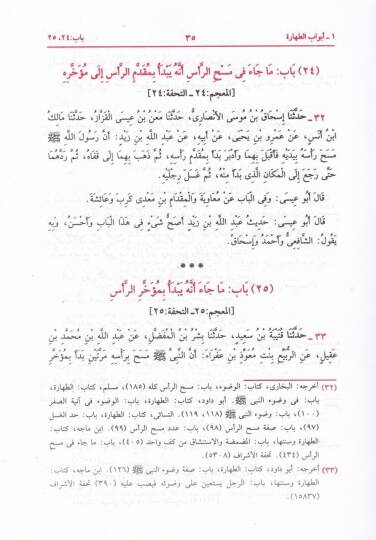 ١ - أبواب الطهارة ٣٥ باب: ٢٤، ٢٥
(٢٤) بَاب: مَا جَاءَ فِي مَسْحِ الرَّأْسِ أَنَّهُ يَبْدَأُ بِمُقَدَّمِ الرَّأْسِ إِلَى مُؤَخَّرِهِ
[المعجم: ٢٤ - التحفة: ٢٤]
٣٢ - حَدَّثَنَا إِسْحَاقُ بْنُ مُوسَى الْأَنْصَارِيُّ، حَدَّثَنَا مَعْنُ بْنُ عِيسَى الْقَزَّازُ، حَدَّثَنَا مَالِكُ
ابْنُ أَنَسٍ، عَنْ عَمْرِو بْنِ يَحْيَى، عَنْ أَبِيهِ، عَنْ عَبْدِ اللَّهِ بْنِ زَيْدٍ: أَنَّ رَسُولَ اللَّهِ ﷺ
مَسَحَ رَأْسَهُ بِيَدَيْهِ فَأَقْبَلَ بِهِمَا وَأَدْبَرَ بَدَأَ بِمُقَدَّمِ رَأْسِهِ، ثُمَّ ذَهَبَ بِهِمَا إِلَى قَفَاهُ، ثُمَّ رَدَّهُمَا
حَتَّى رَجَعَ إِلَى الْمَكَانِ الَّذِي بَدَأَ مِنْهُ، ثُمَّ غَسَلَ رِجْلَيْهِ.
قَالَ أَبُو عِيسَى: وَفِي الْبَاب عَنْ مُعَاوِيَةَ وَالْمِقْدَامِ بْنِ مَعْدِي كَرِبَ وَعَائِشَةَ.
قَالَ أَبُو عِيسَى: حَدِيثُ عَبْدِ اللَّهِ بْنِ زَيْدٍ أَصَحُّ شَيْءٍ فِي هَذَا الْبَاب وَأَحْسَنُ، وَبِهِ
يَقُولُ: الشَّافِعِيُّ وَأَحْمَدُ وَإِسْحَاقُ.
***
(٢٥) بَاب: مَا جَاءَ أَنَّهُ يَبْدَأُ بِمُؤَخَّرِ الرَّأْسِ
[المعجم: ٢٥ - التحفة: ٢٥]
٣٣ - حَدَّثَنَا قُتَيْبَةُ بْنُ سَعِيدٍ، حَدَّثَنَا بِشْرُ بْنُ الْمُفَضَّلِ، عَنْ عَبْدِ اللَّهِ بْنِ مُحَمَّدِ بْنِ
عَقِيلٍ، عَنِ الرُّبَيِّعِ بِنْتِ مُعَوِّذِ بْنِ عَفْرَاءَ: أَنَّ النَّبِيَّ ﷺ مَسَحَ بِرَأْسِهِ مَرَّتَيْنِ بَدَأَ بِمُؤَخَّرِ
(٣٢) أخرجه: البخاري، كتاب: الوضوء، باب: مسح الرأس كله (١٨٥)، مسلم، كتاب: الطهارة،
باب: في وضوء النبي ﷺ. أبو داود، كتاب: الطهارة، باب: الوضوء في آنية الصفر
(١٠٠)، باب: وضوء النبي ﷺ (١١٨، ١١٩). النسائي، كتاب: الطهارة، باب: حد الغسل
(٩٧)، باب: صفة مسح الرأس (٩٨)، باب: عدد مسح الرأس (٩٩). ابن ماجه، كتاب:
الطهارة وسننها، باب: المضمضة والاستنشاق من كف واحد (٤٠٥)، باب: ما جاء في مسح
الرأس (٤٣٤). تحفة الأشراف (٥٣٠٨).
(٣٣) أخرجه: أبو داود، كتاب: الطهارة، باب: صفة وضوء النبي ﷺ (١٢٦). ابن ماجه، كتاب:
الطهارة وسننها، باب: الرجل يستعين على وضوئه فيصب عليه (٣٩٠) تحفة الأشراف
(١٥٨٣٧).